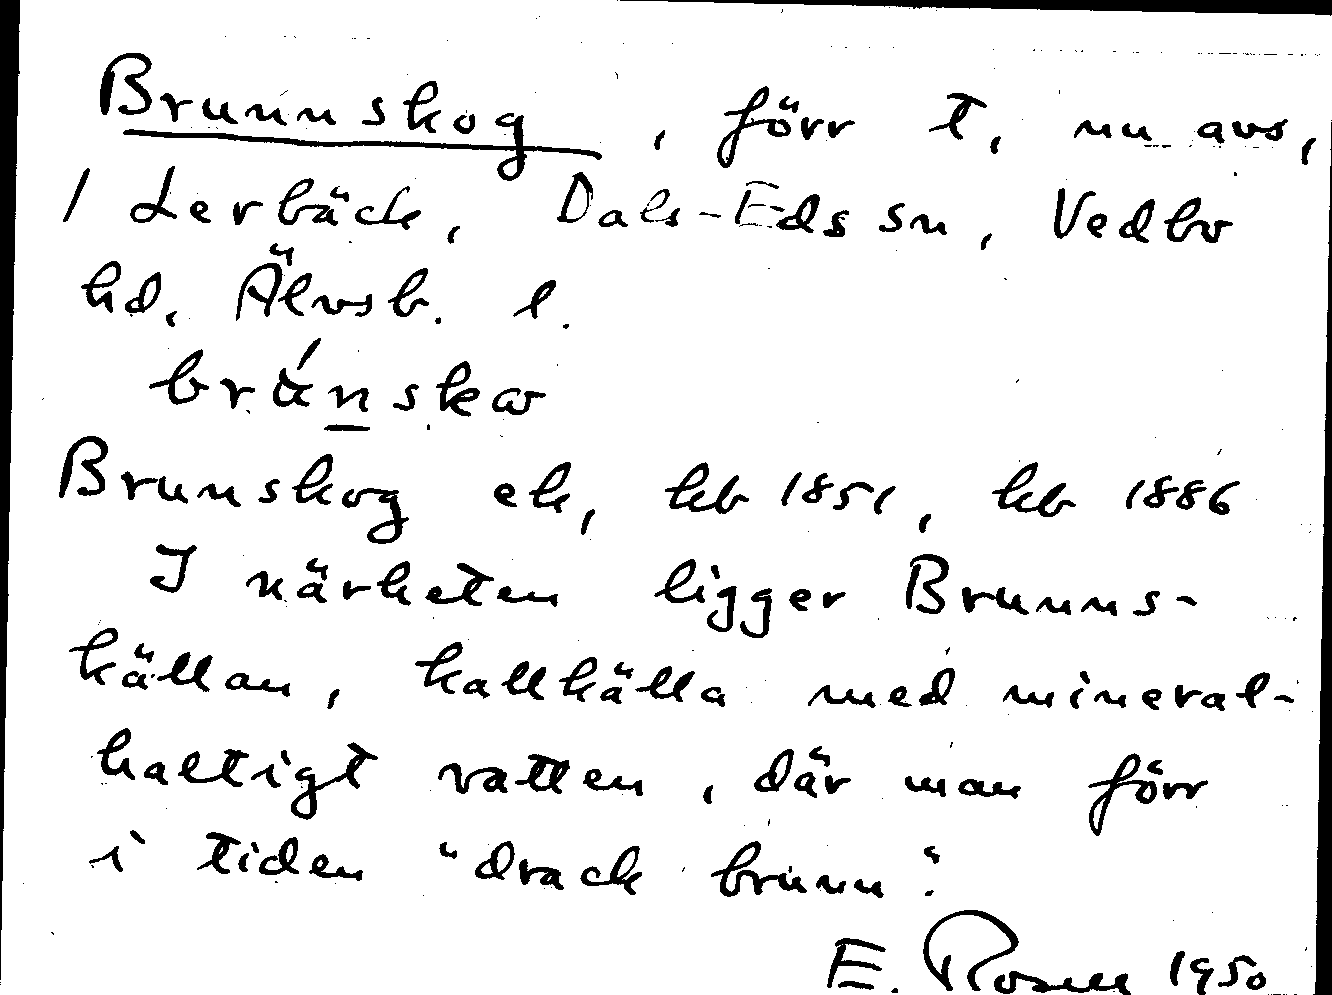 Brunnskog, förr t, nu avs,
1 Lerbäck, Dals-Eds sn, Vedbo
hd, Älvsb. l.
brúnskω
Brunskog ek, kb 1851, kb 1886
I närheten ligger Brunns-
källan, kallkälla med mineral-
haltigt vatten, där man förr
i tiden "drack brunn".
E. Rosell 1950